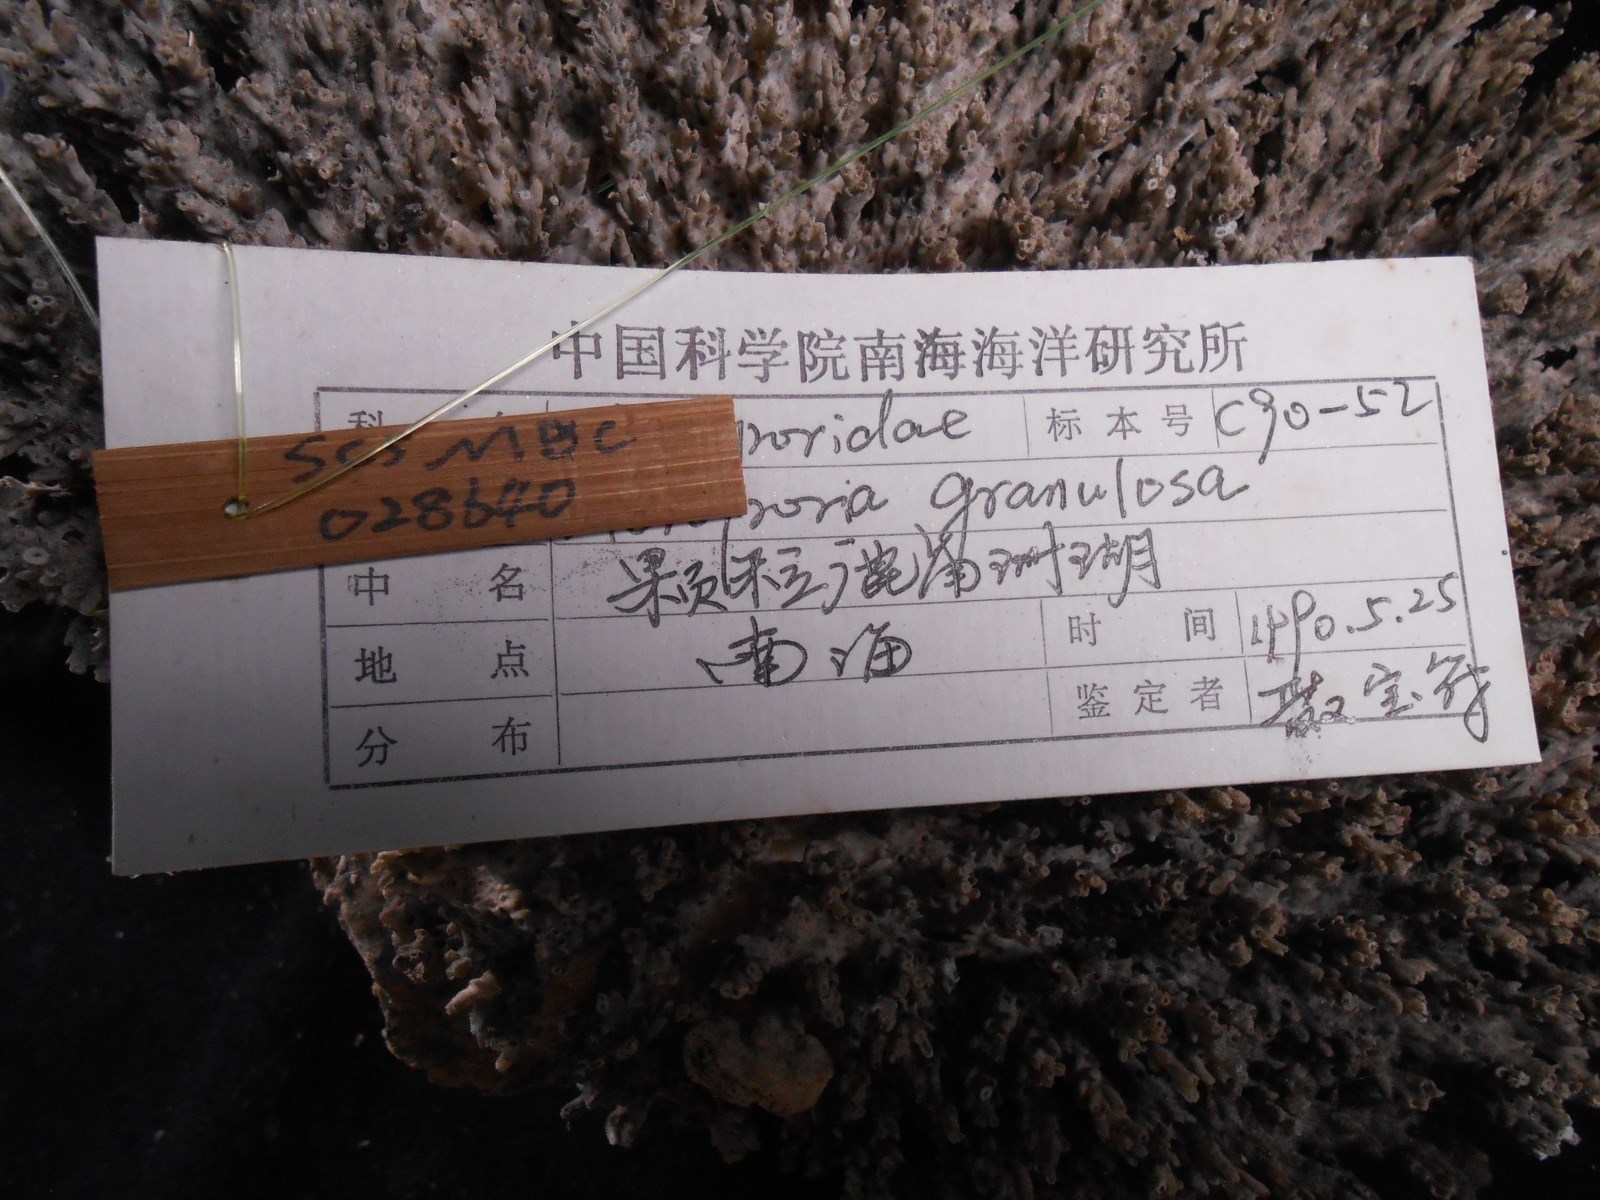 中国科学院南海海洋研究所
科 poridae 标本号 C90-52
SCSMBC
028640
poria granulosa
中名 颗粒蔷薇珊瑚
地点 南海 时间 1990.5.25
分布 鉴定者 宝